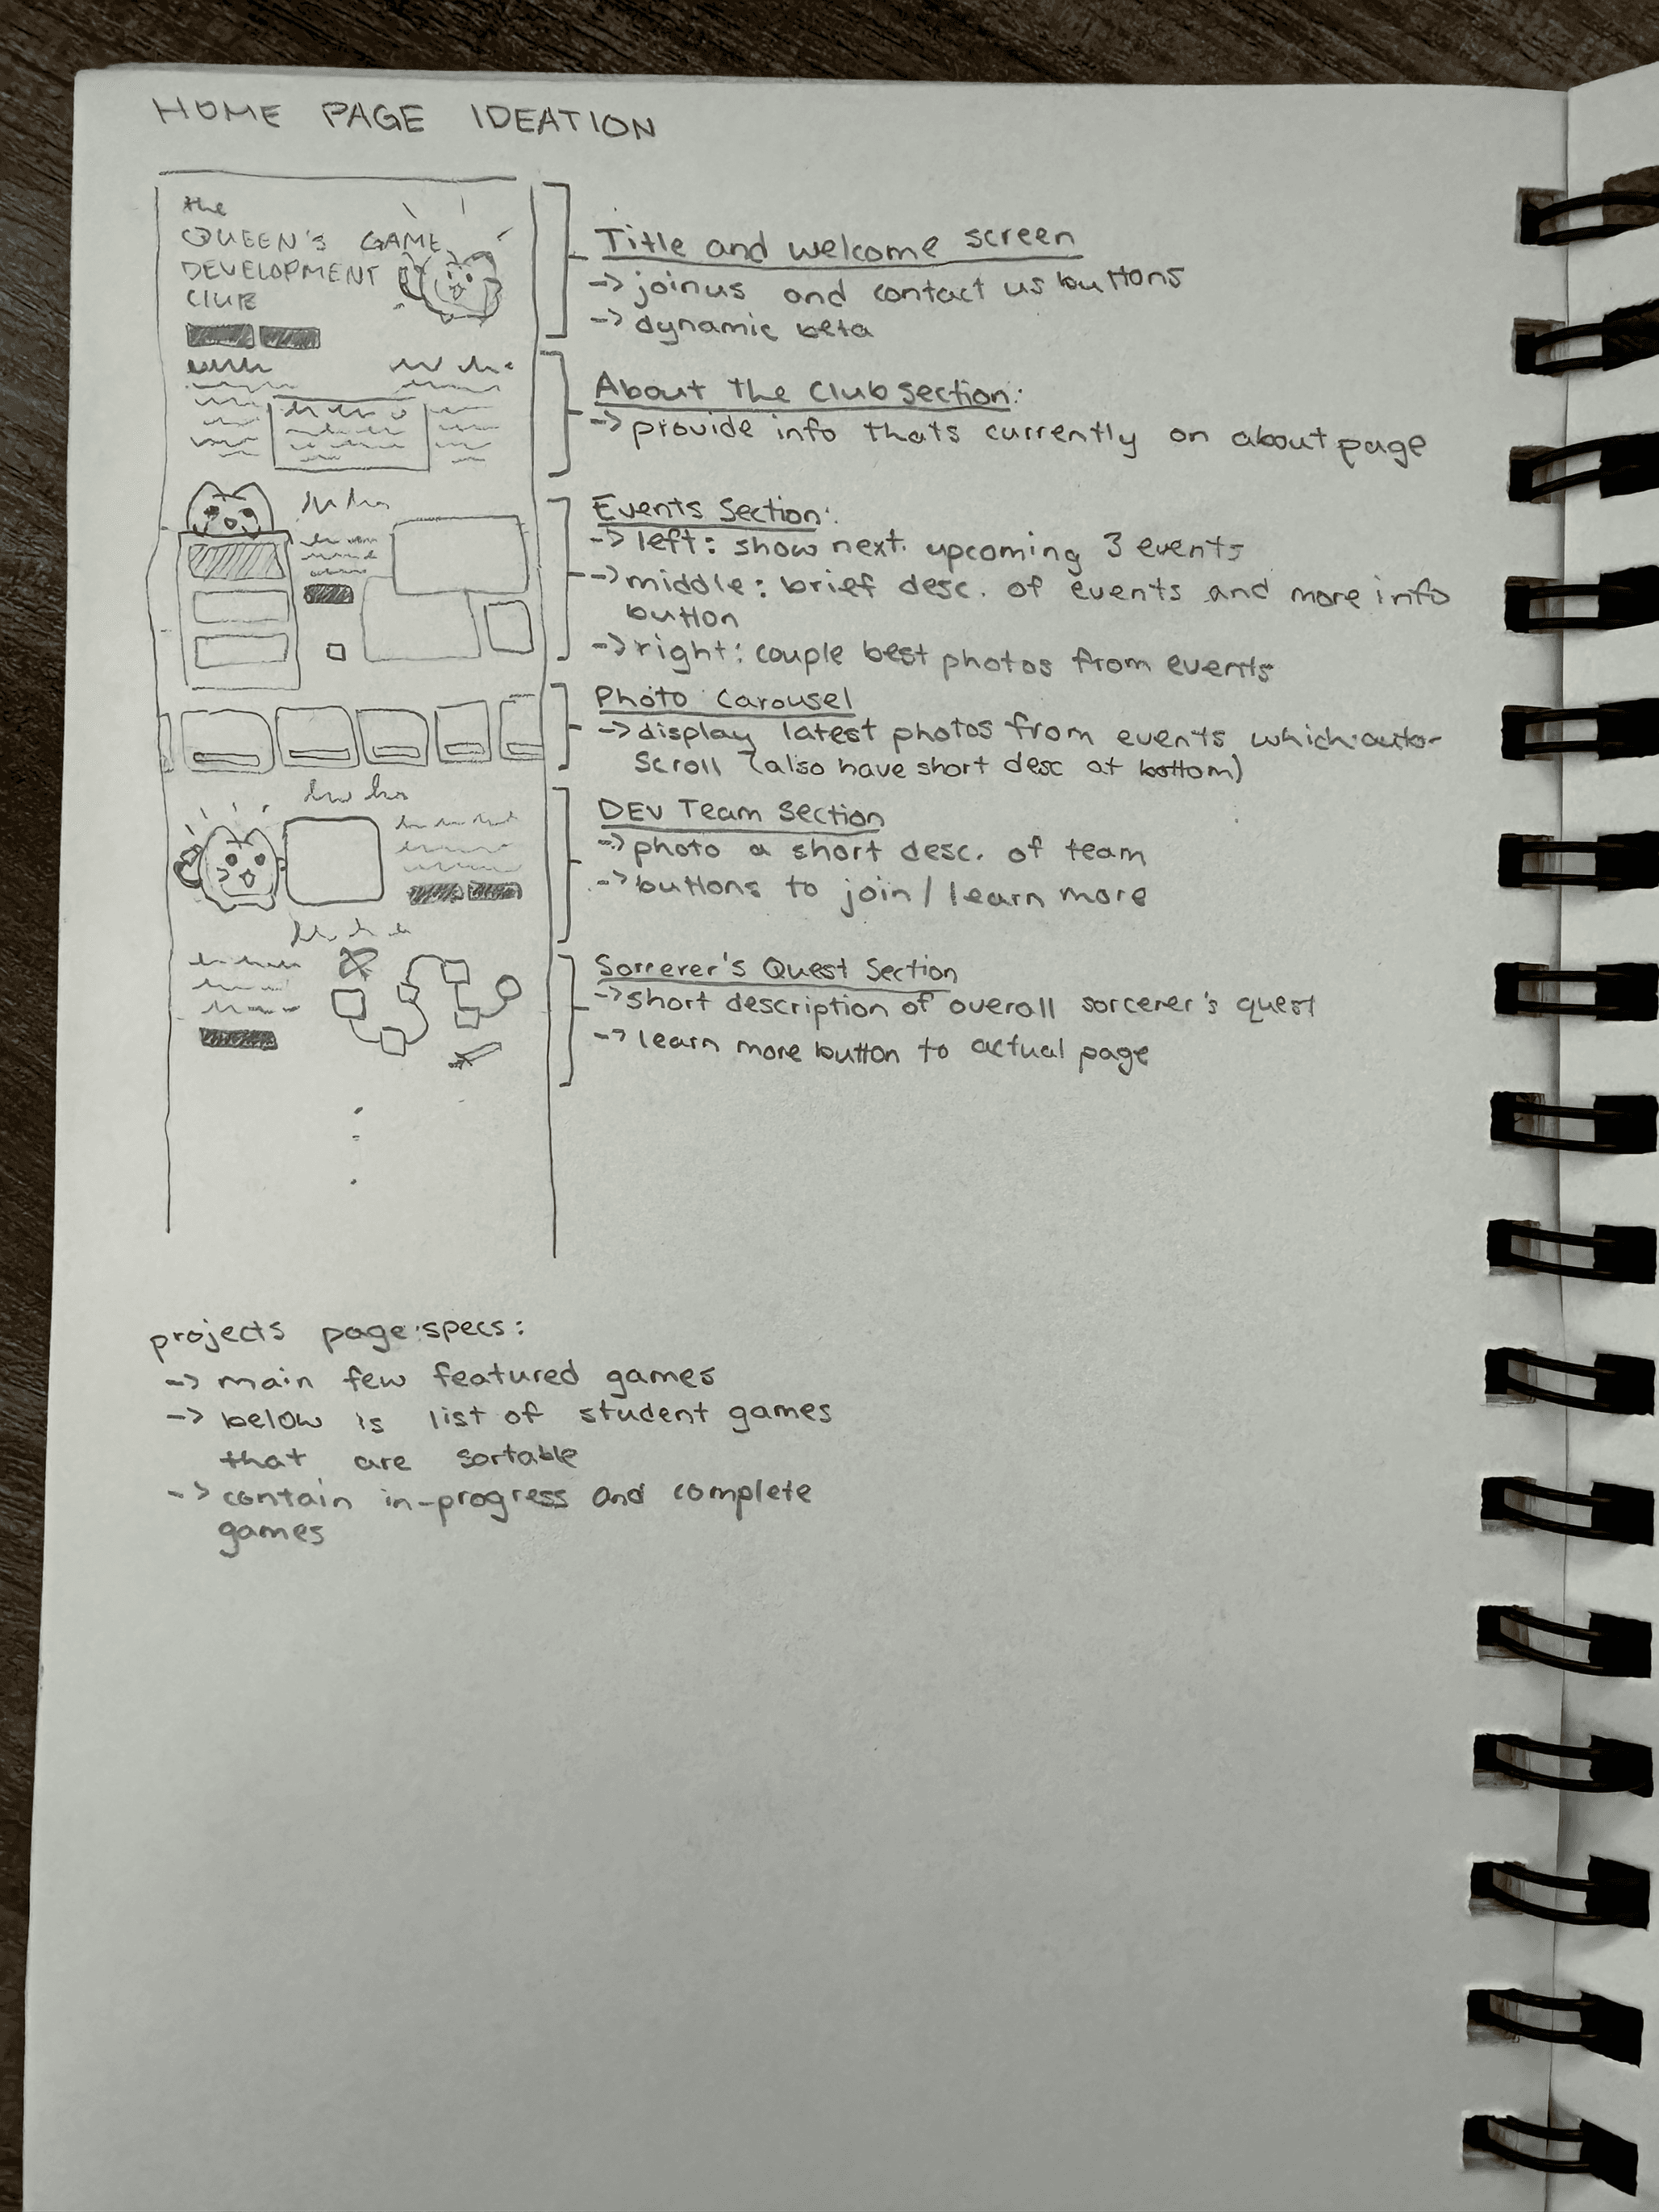 HOME PAGE IDEATION
the
QUEEN'S GAME
DEVELOPMENT
CLUB
Title and welcome screen
-> join us and contact us buttons
-> dynamic beta
About the Club section:
-> provide info thats currently on about page
Events Section:
-> left: show next upcoming 3 events
-> middle: brief desc. of events and more info
button
-> right: couple best photos from events
Photo Carousel
-> display latest photos from events which auto-
scroll (also have short desc at bottom)
DEV Team Section
-> photo a short desc. of team
-> buttons to join / learn more
Sorrerer's Quest Section
-> short description of overall sorcerer's quest
-> learn more button to actual page
projects page specs:
-> main few featured games
-> below is list of student games
that are sortable
-> contain in-progress and complete
games